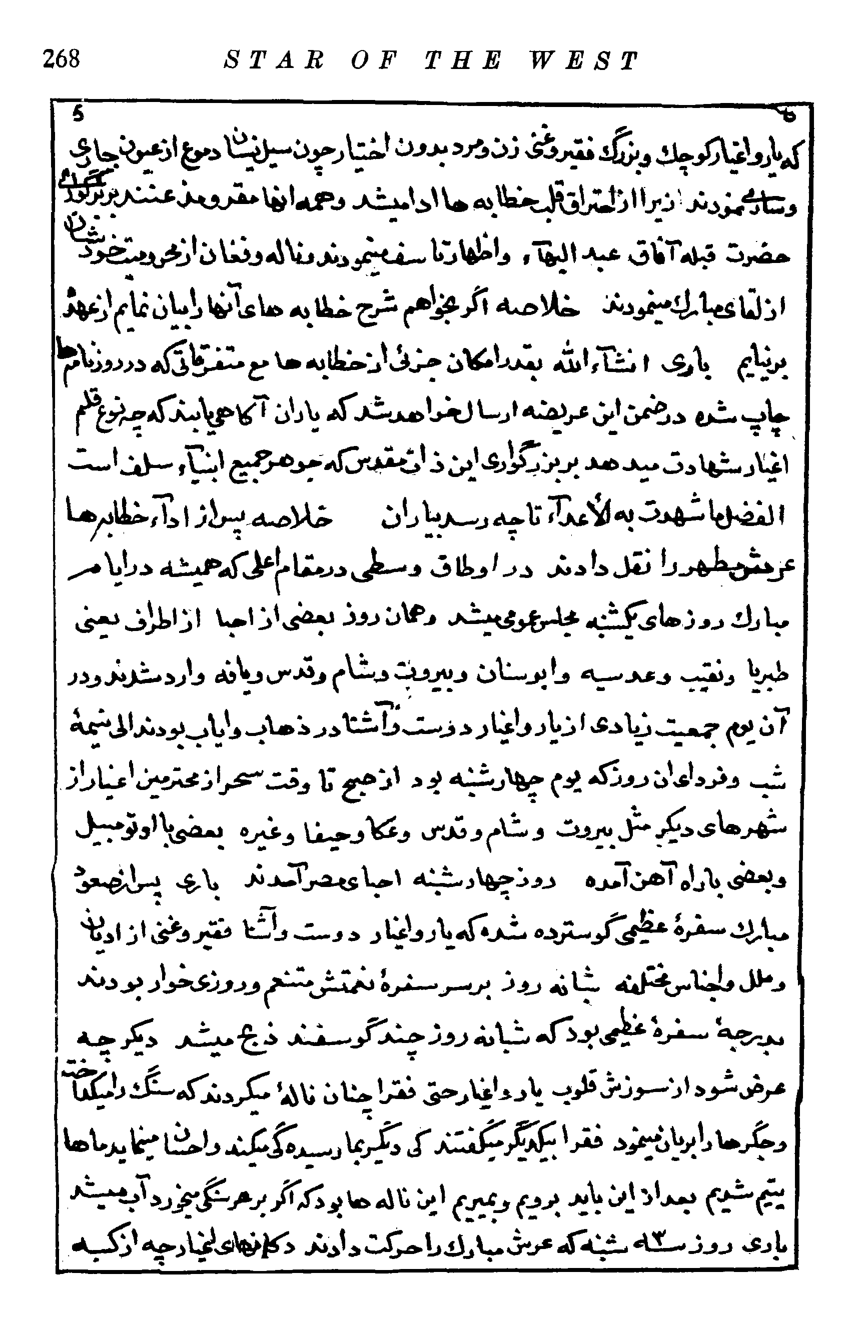 268 STAR OF THE WEST
5 ۵
که یار و اغیار کوچك و بزرگ فقیر و غنی زن و مرد بدون اختیار چون سیل نیسان دموع از عیون جاری
و نمودند زیرا از احتراق قلب خطابه ها ادا میشد و همه آنها مقر و مذعنند بر بزرگواری
حضرت قبله آفاق عبد البهآء و اظهار تأسف مینمودند و ناله و فغان از محرومیت خودشان
از لقای مبارك مینمودند خلاصه اگر بخواهم شرح خطابه های آنها را بیان نمایم از عهده
برنیایم باری انشآءالله بقدر امکان جزئی از خطابه ها مع متفرقاتی که در روزنامه ها
چاپ شده در ضمن این عریضه ارسال خواهد شد که یاران آگاهی یابند که چه نوع قلم
اغیار شهادت میدهد بر بزرگواری این ذات مقدس که جوهر جمیع انبیآء سلف است
الفضل ما شهدت به الأعدآء تا چه رسد بیاران خلاصه پس از ادآء خطابه ها
عرش مطهر را نقل دادند در اوطاق وسطی در مقام اعلی که همیشه در ایام
مبارك روزهای یکشنبه مجلس عمومی میشد و همان روز بعضی از احبا از اطراف یعنی
طبریا و نقیب و عدسیه و ابوسنان و بیروت و شام و قدس و یافه وارد شدند و در
آن یوم جمعیت زیادی از یار و اغیار دوست و آشنا در ذهاب و ایاب بودند الی نیمهٔ
شب و فردای ان روز که یوم چهارشنبه بود از صبح تا وقت سحر از محترمین اغیار از
شهرهای دیگر مثل بیروت و شام و قدس و عکا و حیفا و غیره بعضی با اوتومبیل
و بعضی با راه آهن آمده روز چهارشنبه احبای مصر آمدند باری پس از صعود
مبارك سفرهٔ عظیمی گوسترده شده که یار و اغیار دوست و آشنا فقیر و غنی از ادیان
و ملل و اجناس مختلفه شبانه روز بر سر سفرهٔ نعمتش متنعم و روزی خوار بودند
بدرجهٔ سفرهٔ عظیمی بود که شبانه روز چند گوسفند ذبح میشد دیگر چه
عرض شود از سوزش قلوب یار و اغیار حتی فقرا چنان نالهٔ میکردند که سنگ را میگداخت
و جگرها را بریان مینمود فقرا بیکدیگر میگفتند کی دیگر بما رسیده گی میکند و احسان مینماید ماها
یتیم شدیم بعد از این باید برویم و بمیریم این ناله ها بود که اگر بر هر سنگی میخورد آب میشد
باری روز سه ۳ شنبه که عرش مبارك را حرکت دادند دکانهای اغیار چه از کسبه